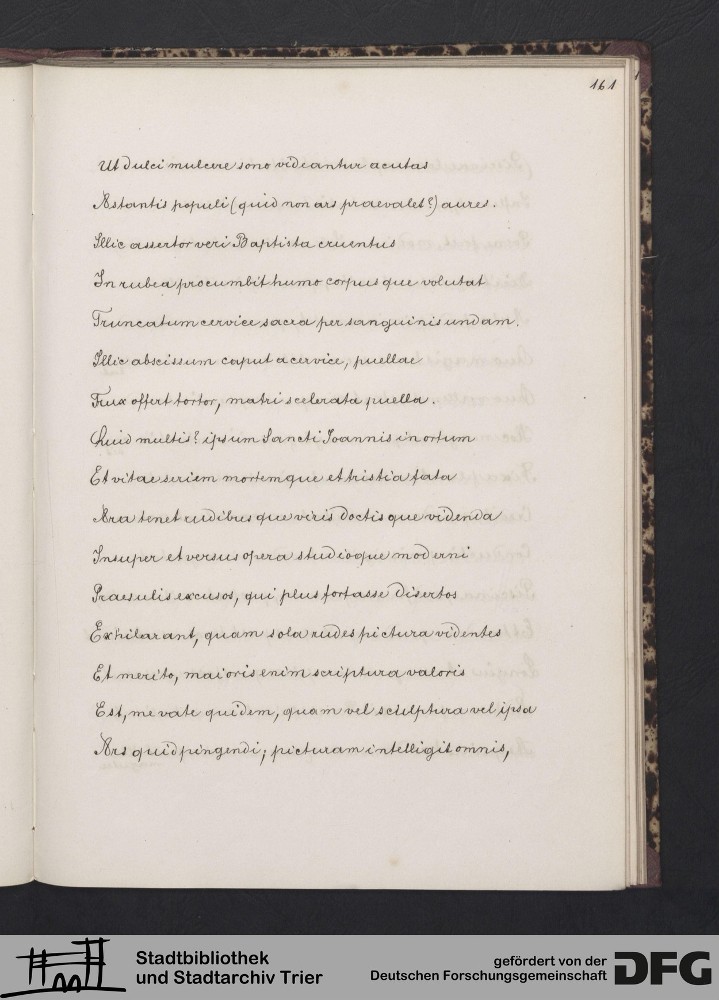 161
Ut dulci mulcere sono videantur acutas
Astantis populi (quid non ars praevalet?) aures.
Illic assertor veri Baptista cruentus
In rubea procumbit humo corpusque volutat
Truncatum cervice sacra per sanguinis undam.
Illic abscissum caput a cervice, puellae
Trux offert tortor, matri scelerata puella.
Quid multis? ipsum Sancti Joannis in ortum
Et vitae seriem mortemque et tristia fata
Ara tenet rudibusque viris doctisque videnda
Insuper et versus opera studioque moderni
Praesulis excusos, qui plus fortasse disertos
Exhilarant, quam sola rudes pictura videntes
Et merito, maioris enim scriptura valoris
Est, me vate quidem, quam vel sculptura vel ipsa
Ars quid pingendi; picturam intelligit omnis,
Stadtbibliothek
und Stadtarchiv Trier
gefördert von der
Deutschen Forschungsgemeinschaft
DFG